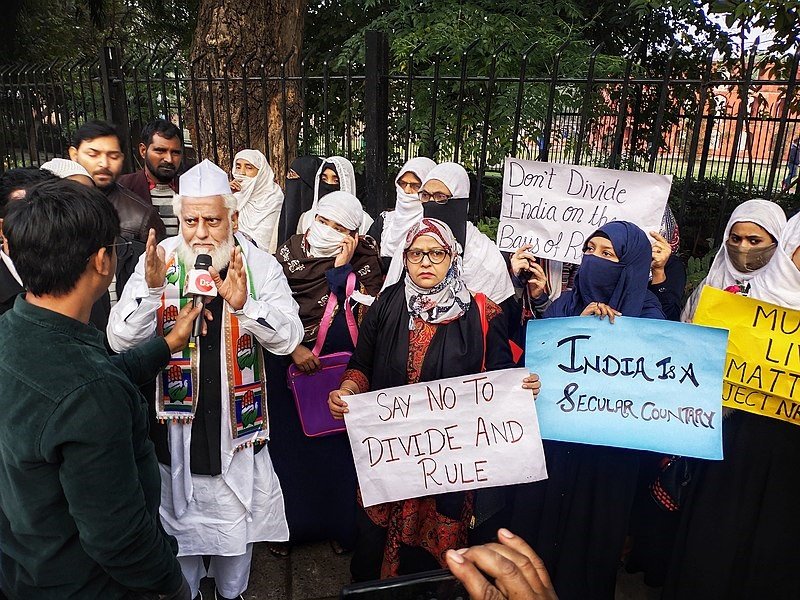 Don't Divide
India on the
Bays of R
SAY NO TO
DIVIDE AND
RULE
INDIA IS A
SECULAR COUNTARY
MU
LIV
MATT
JECT NA